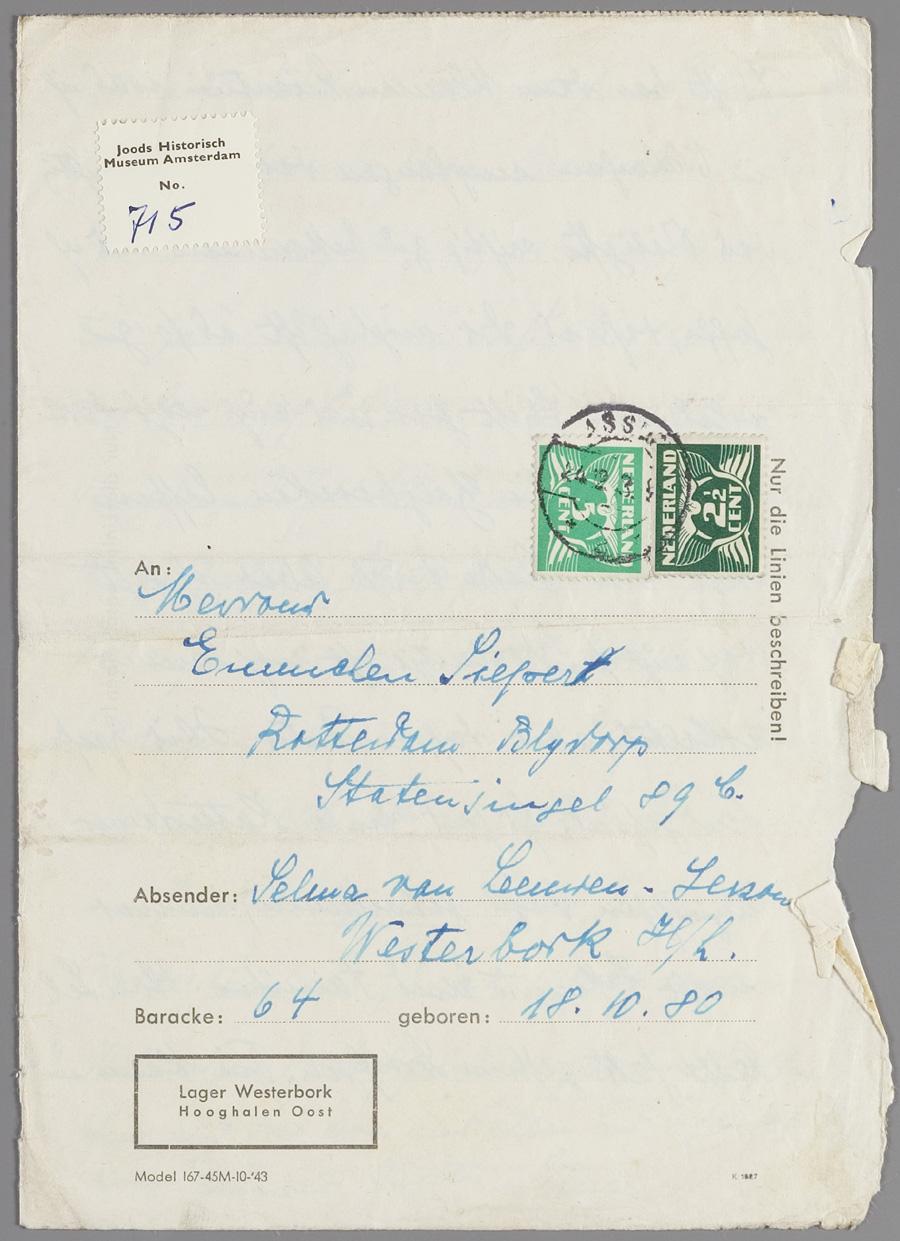 Joods Historisch
Museum Amsterdam
No.
715
ASS
NEDERLAND
5
CENT
NEDERLAND
2½
CENT
Nur die Linien beschreiben!
An:
Mevrouw
Emmalen Siepert
Rotterdam Blydorp
Statensingel 89 C.
Absender: Selma van Leeuwen-
Westerbork H/h.
Baracke: 64 geboren: 18. 10. 80
Lager Westerbork
Hooghalen Oost
Model 167-45M-10-'43